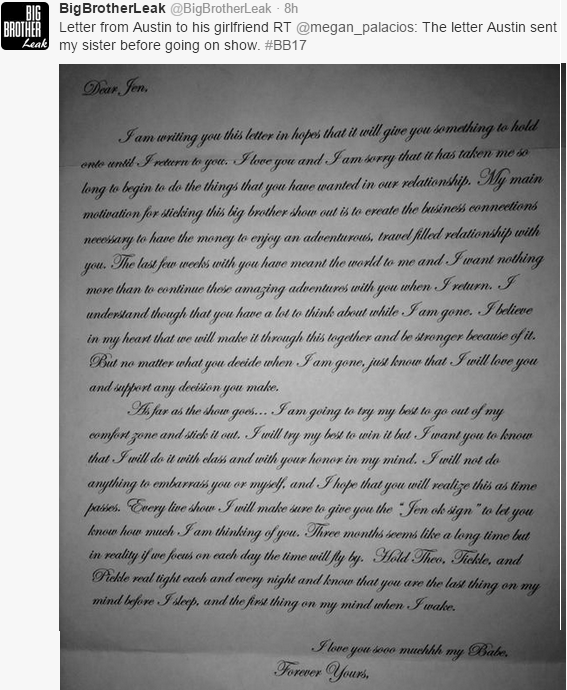 BIG
BROTHER
Leak
BigBrotherLeak @BigBrotherLeak · 8h
Letter from Austin to his girlfriend RT @megan_palacios: The letter Austin sent
my sister before going on show. #BB17
Dear Jen,
I am writing you this letter in hopes that it will give you something to hold
onto until I return to you. I love you and I am sorry that it has taken me so
long to begin to do the things that you have wanted in our relationship. My main
motivation for sticking this big brother show out is to create the business connections
necessary to have the money to enjoy an adventurous, travel filled relationship with
you. The last few weeks with you have meant the world to me and I want nothing
more than to continue these amazing adventures with you when I return. I
understand though that you have a lot to think about while I am gone. I believe
in my heart that we will make it through this together and be stronger because of it.
But no matter what you decide when I am gone, just know that I will love you
and support any decision you make.
As far as the show goes... I am going to try my best to go out of my
comfort zone and stick it out. I will try my best to win it but I want you to know
that I will do it with class and with your honor in my mind. I will not do
anything to embarrass you or myself, and I hope that you will realize this as time
passes. Every live show I will make sure to give you the "Jen ok sign" to let you
know how much I am thinking of you. Three months seems like a long time but
in reality if we focus on each day the time will fly by. Hold Theo, Tickle, and
Pickle real tight each and every night and know that you are the last thing on my
mind before I sleep, and the first thing on my mind when I wake.
I love you sooo muchhh my Babe,
Forever Yours,